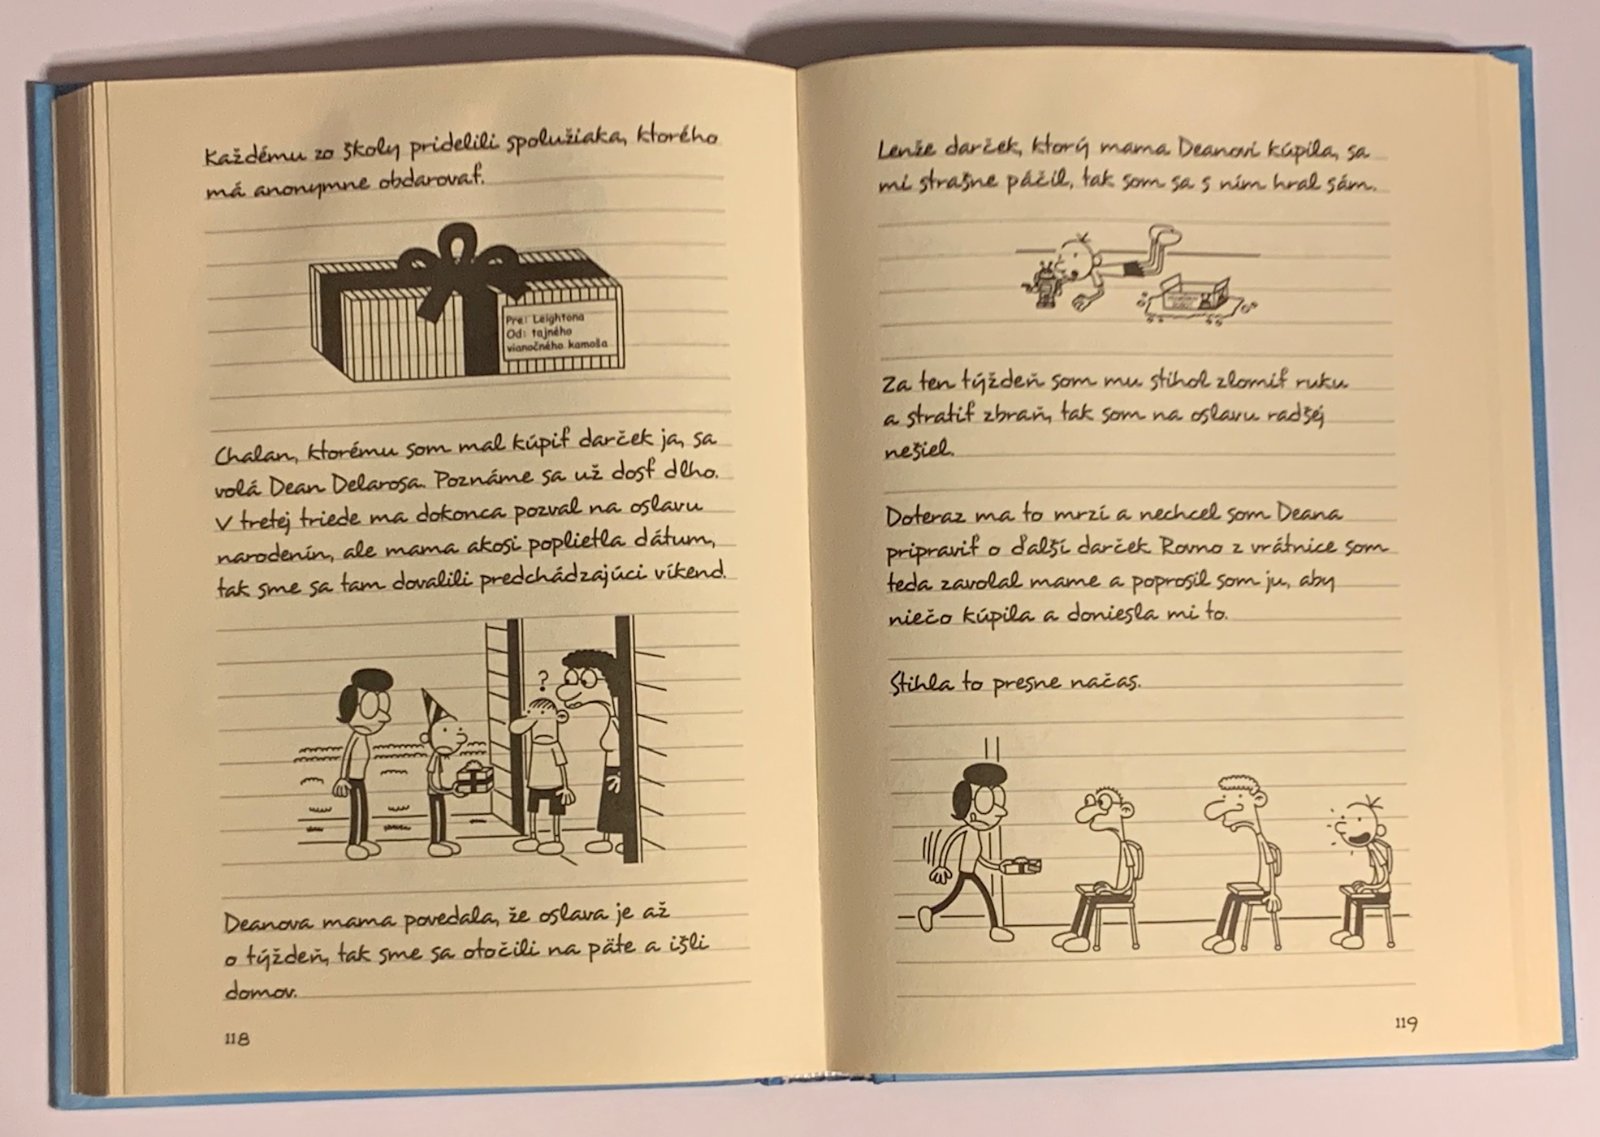 Každému zo školy pridelili spolužiaka, ktorého
má anonymne obdarovať.
Pre: Leightona
Od: tajného
vianočného kamoša
Chalan, ktorému som mal kúpiť darček ja, sa
volá Dean Delarosa. Poznáme sa už dosť dlho.
V tretej triede ma dokonca pozval na oslavu
narodenín, ale mama akosi poplietla dátum,
tak sme sa tam dovalili predchádzajúci víkend.
?
Deanova mama povedala, že oslava je až
o týždeň, tak sme sa otočili na päte a išli
domov.
118
Lenže darček, ktorý mama Deanovi kúpila, sa
mi strašne páčil, tak som sa s ním hral sám.
Za ten týždeň som mu stihol zlomiť ruku
a stratiť zbraň, tak som na oslavu radšej
nešiel.
Doteraz ma to mrzí a nechcel som Deana
pripraviť o ďalší darček. Rovno z vrátnice som
teda zavolal mame a poprosil som ju, aby
niečo kúpila a doniesla mi to.
Stihla to presne načas.
119